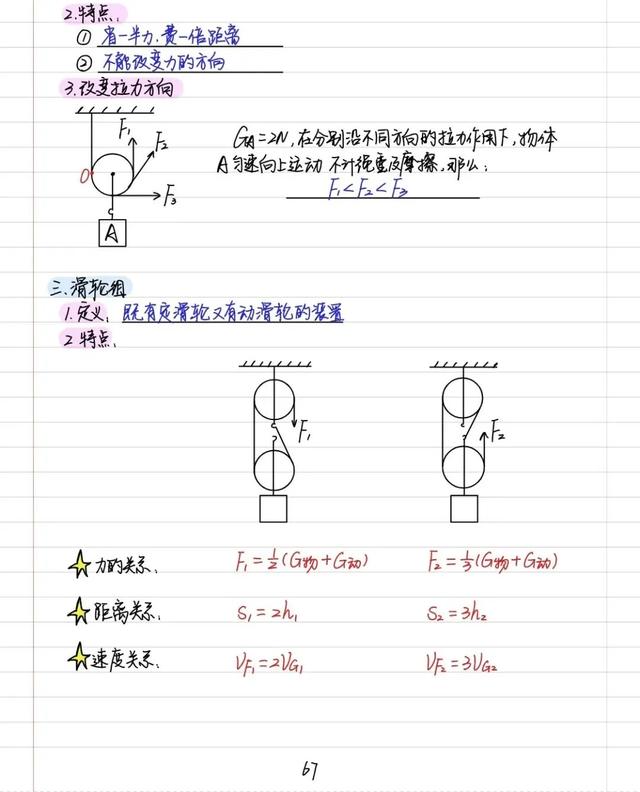 2.特点.
① 省一半力,费一倍距离
② 不能改变力的方向
3.改变拉力方向
F₁
F₂
O
F₃
A
GA=2N,在分别沿不同方向的拉力作用下,物体
A匀速向上运动 不计绳重及摩擦,那么:
F₁<F₂<F₃
三.滑轮组
1.定义. 既有定滑轮又有动滑轮的装置
2 特点.
F₁
F₂
力的关系. F₁=½(G物+G动) F₂=⅓(G物+G动)
距离关系. S₁=2h₁ S₂=3h₂
速度关系. VF₁=2VG₁ VF₂=3VG₂
67